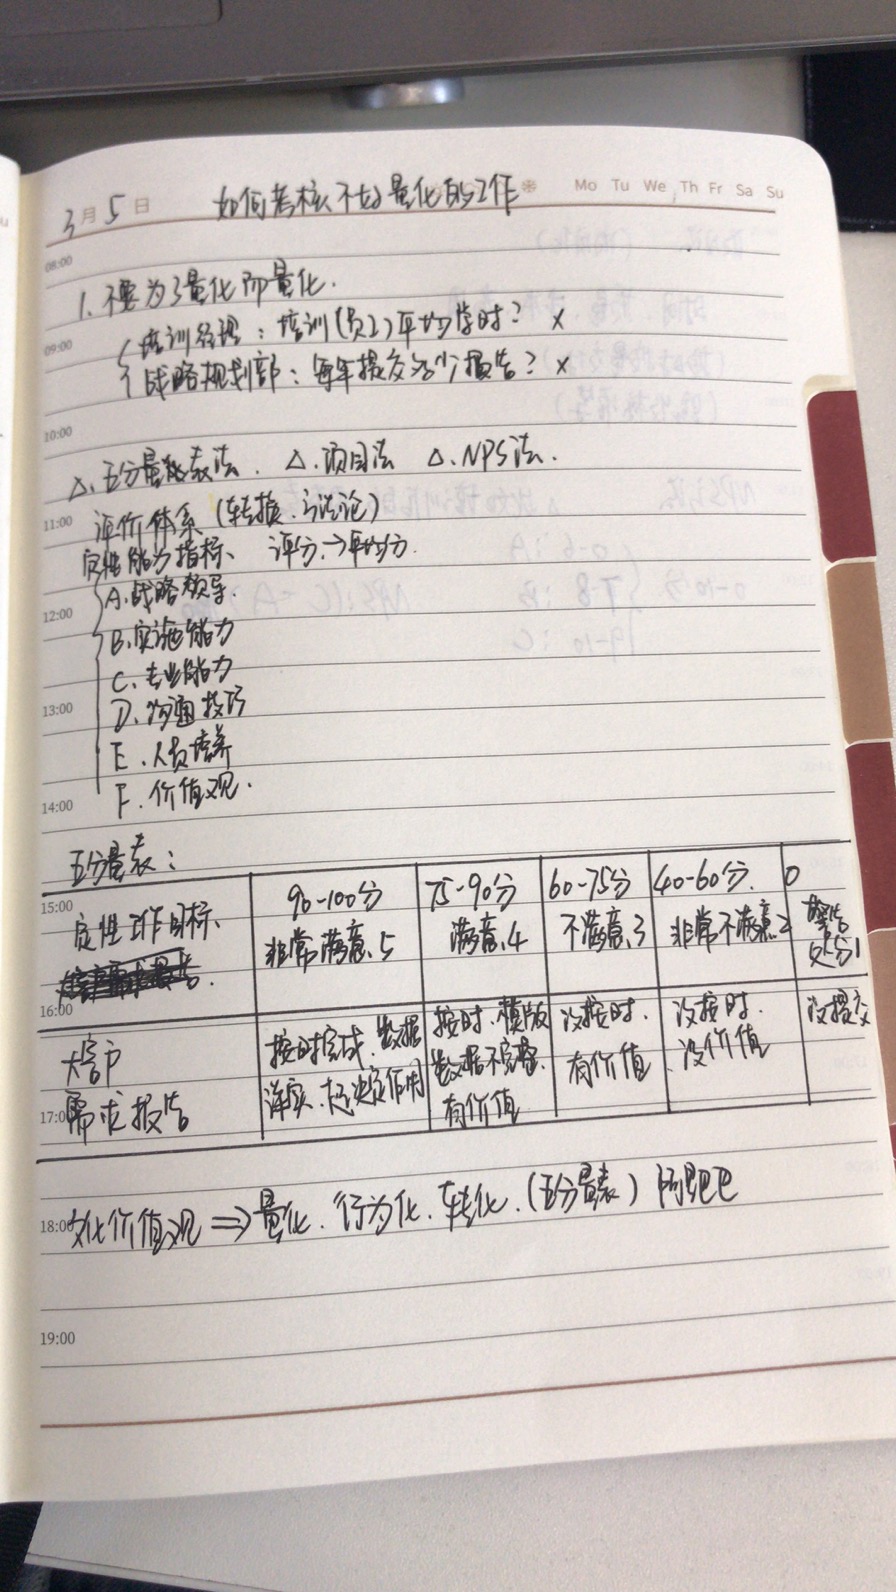 3月5日 如何考核不好量化的工作 Mo Tu We Th Fr Sa Su
08:00
1. 不要为了量化而量化.
09:00 培训经理：培训(员工)平均学时？ x
战略规划部：每年提交多少报告？ x
10:00
△. 五分量化表法. △. 项目法 △. NPS法.
11:00 评价体系 (转换. 讨论)
定性能力指标、 评分.→平均分.
A. 战略领导.
12:00
B. 实施能力
C. 专业能力
13:00 D. 沟通技巧
E. 人员培养
14:00 F. 价值观.
五分量表：
15:00 定性工作目标、 90-100分 非常满意、5 75-90分 满意、4 60-75分 不满意、3 40-60分. 非常不满意、2 0 警告 处分1
16:00
大客户 需求报告 按时完成、数据 详实、起决定作用 按时、模版 数据不完整、 有价值 没按时、 有价值 没按时. 没价值 没提交
17:00
18:00 文化价值观 ⇒ 量化. 行为化. 转化. (五分量表) 阿里巴巴
19:00